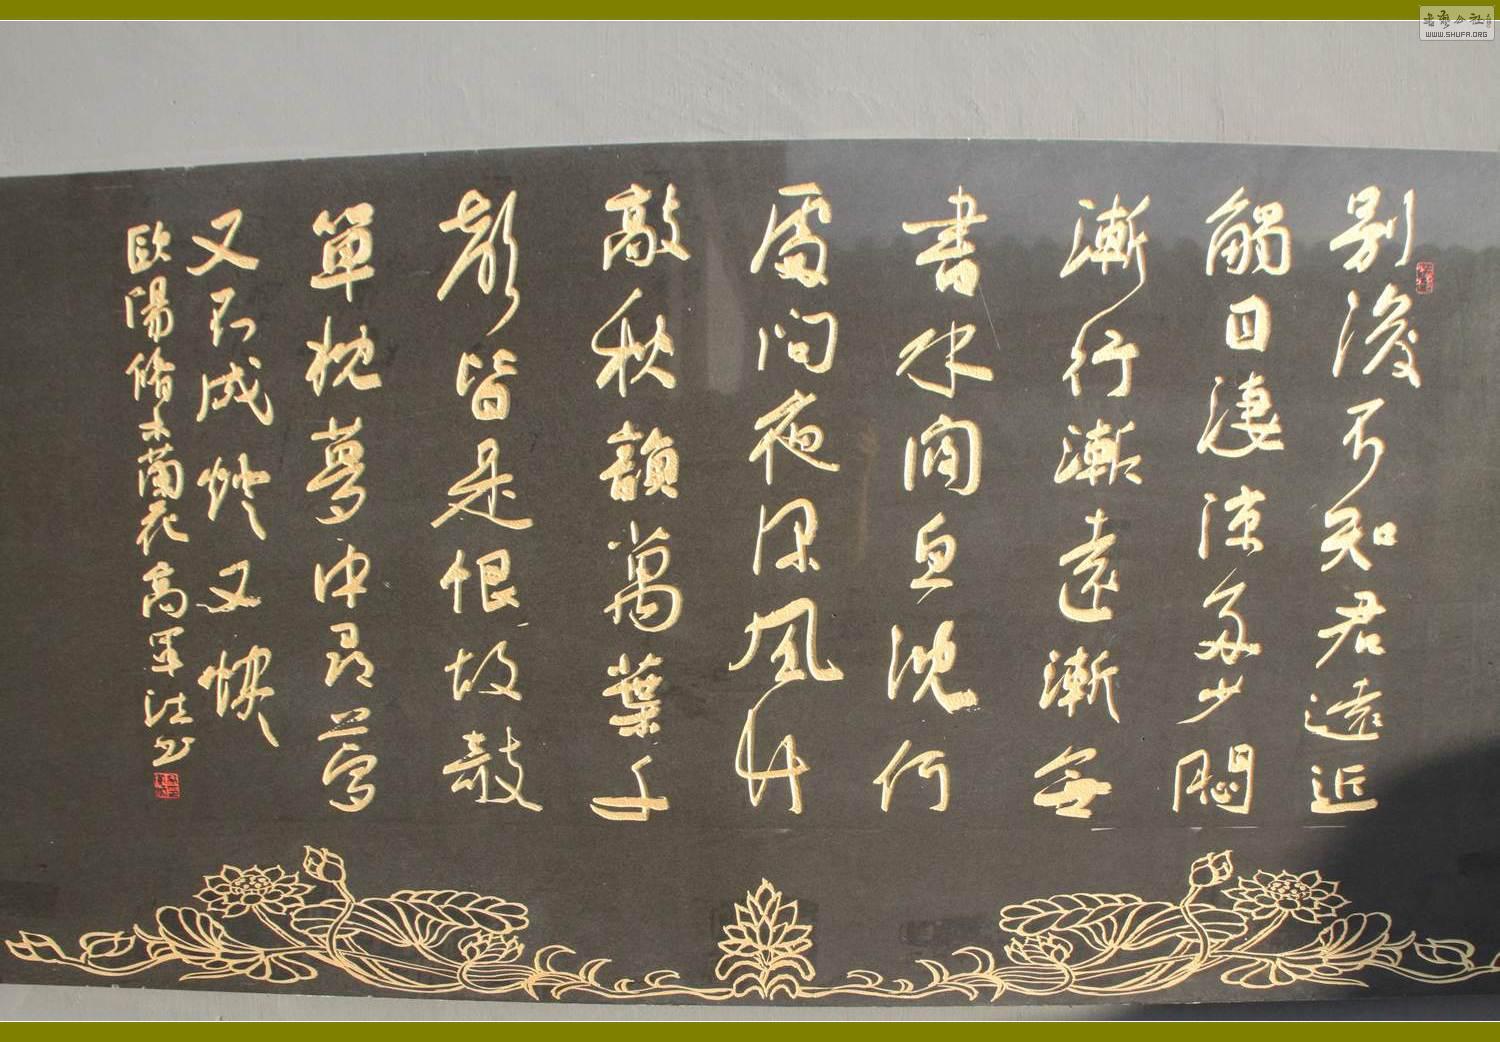 別後不知君遠近
觸目淒涼多少悶
漸行漸遠漸無
書水闊魚沈何
處問夜深風竹
敲秋韻萬葉千
聲皆是恨故敧
單枕夢中尋夢
又不成燈又燼
歐陽脩木蘭花 高軍法书
WWW.SHUFA.ORG